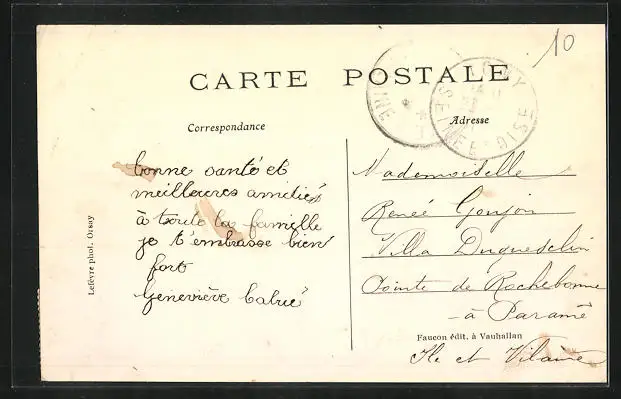 10
CARTE POSTALE
Correspondance
Adresse
bonne santé et
meilleures amitiés
à toute la famille
je t'embrasse bien
fort
Geneviève
Mademoiselle
Renée Goujon
Villa Duguesclin
Pointe de Rochebonne
- à Paramé
Ile et Vilaine
Faucon édit. à Vauhallan
Lefèvre phot. Orsay
SEINE ET OISE